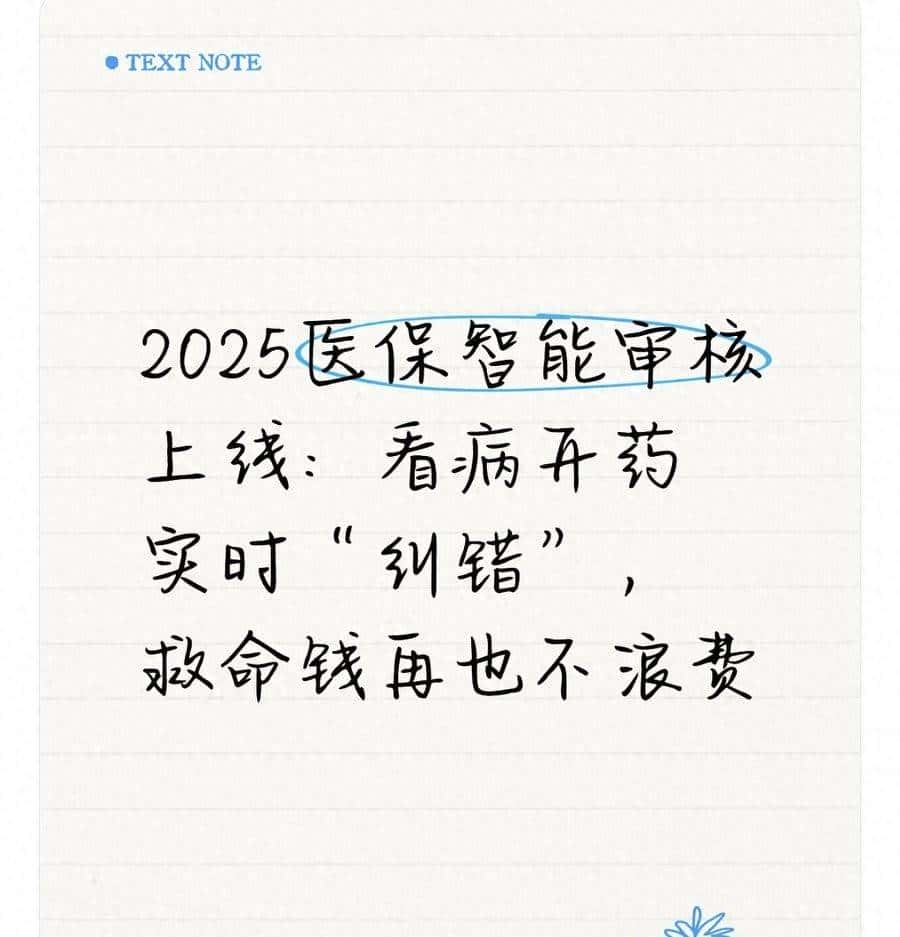 TEXT NOTE
2025医保智能审核
上线：看病开药
实时“纠错”，
救命钱再也不浪费